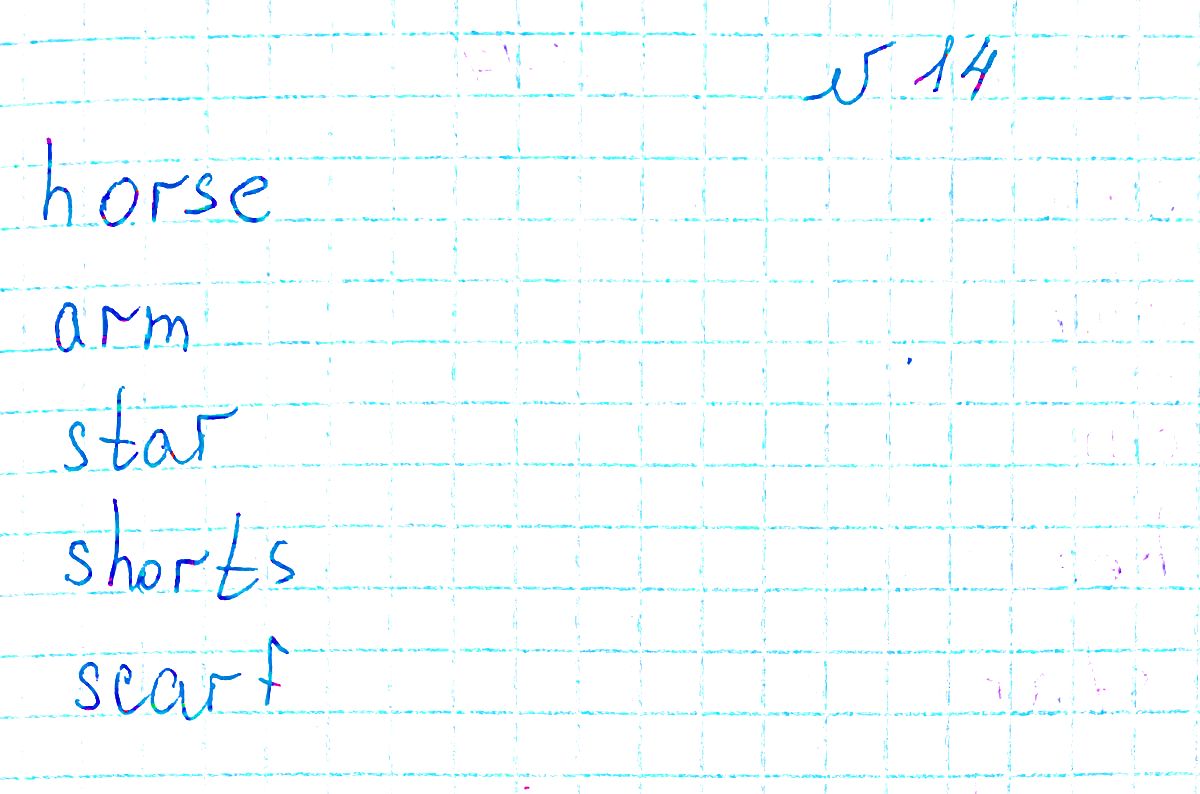 № 14
horse
arm
star
shorts
scarf